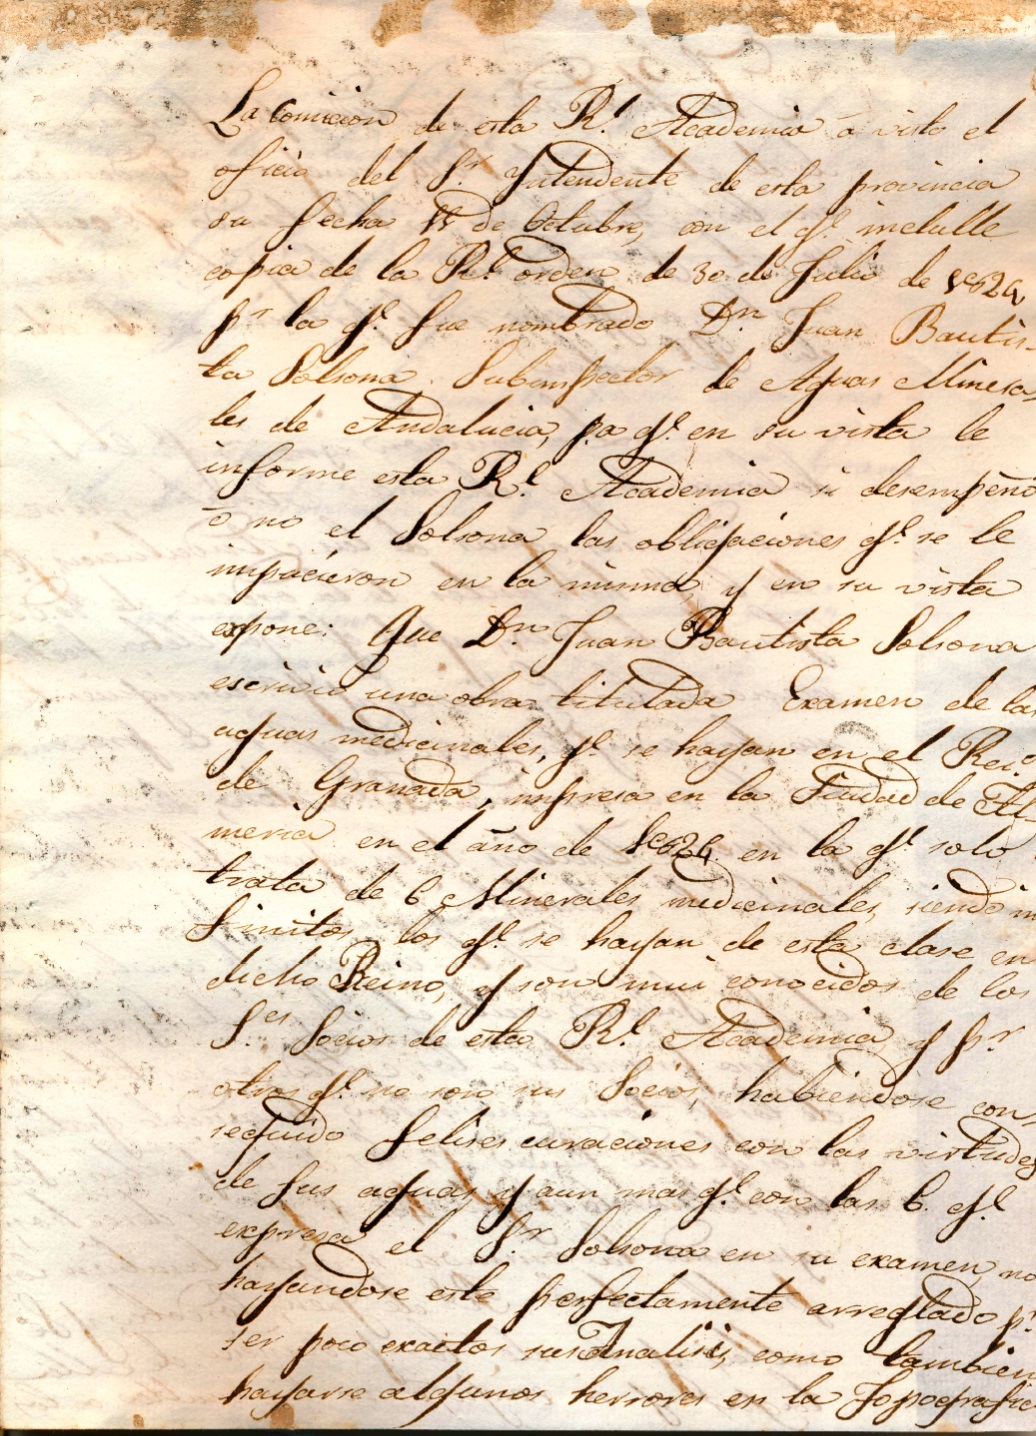 La Comicion de esta Rl. Academia á visto el
oficio del Sr. Yntendente de esta provincia
su fecha de Octubre, con el ql. inclulle
copia de la Rl. orden de 30 de Julio de
pr. la ql. fue nombrado Dn. Juan Bautis-
ta Solsona Subinspector de Aguas Minera
les de Andalucia, pa. ql. en su vista le
informe esta Rl. Academia si desempeñó
ó no el Solsona las obligaciones ql. se le
impucieron en la misma, y en su vista
expone: Que Dn. Juan Bautista Solsona
escrivió una obra titulada Examen de las
aguas medicinales, ql. se hayan en el Reio.
de Granada, impresa en la Ciudad de Al
meria en el año de en la ql. solo
trata de 6 Minerales medicinales, siendo in
finitos los ql. se hayan de esta clase en
dicho Reino, y son mui conocidos de los
Ses. Socios de esta Rl. Academia, y pr.
otros ql. no son sus Socios, habiendose con
seguido felises curaciones con las virtudes
de sus aguas, y aun mas ql. con las 6. ql.
expresa el Sr. Solsona en su examen, no
hayandose este perfectamente arreglado pr.
ser poco exactos sus Analisis, como tambien
hayarse algunos herrores en la Topografia